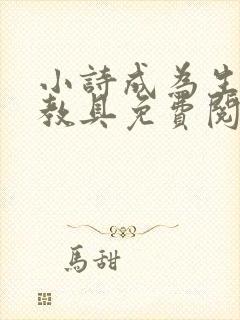 小詩成為生
教具免費閱
馬甜